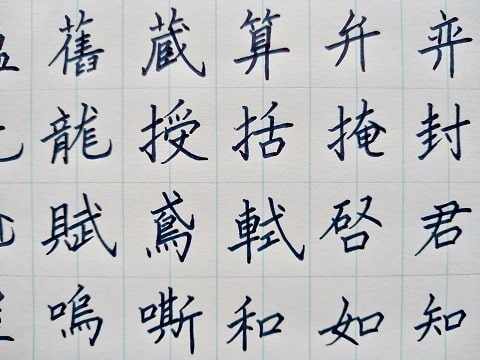 舊蔵算弁弈
龍授括掩封
賦鳶軾啓君
嗚嘶和如知